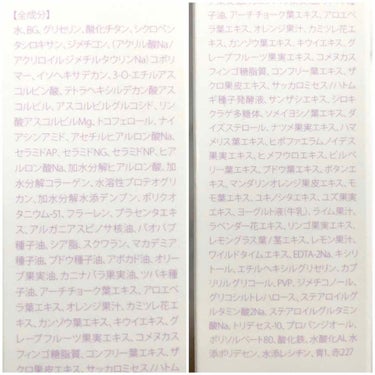 【全成分】
水、BG、グリセリン、酸化チタン、シクロペン
タシロキサン、ジメチコン、(アクリル酸Na/
アクリロイルジメチルタウリンNa)コポリ
マー、イソヘキサデカン、3-O-エチルアス
コルビン酸、テトラヘキシルデカン酸アス
コルビル、アスコルビルグルコシド、リン
酸アスコルビルMg、トコフェロール、ナイ
アシンアミド、アセチルヒアルロン酸Na、
セラミドAP、セラミドNG、セラミドNP、ヒア
ルロン酸Na、加水分解ヒアルロン酸、加
水分解コラーゲン、水溶性プロテオグリ
カン、加水分解水添デンプン、ポリクオ
タニウム-51、フラーレン、プラセンタエキ
ス、アルガニアスピノサ核油、バオバブ
種子油、シア脂、スクワラン、マカデミア
種子油、ブドウ種子油、アボカド油、オリー
ブ果実油、カニナバラ果実油、ツバキ種
子油、アーチチョーク葉エキス、アロエベ
ラ葉エキス、オレンジ果汁、カミツレ花エ
キス、カンゾウ葉エキス、キウイエキス、グ
レープフルーツ果実エキス、コメヌカス
フィンゴ糖脂質、コンフリー葉エキス、ザ
クロ果皮エキス、サッカロミセス/ハトム
子油、アーチチョーク葉エキス、アロエベ
ラ葉エキス、オレンジ果汁、カミツレ花エ
キス、カンゾウ葉エキス、キウイエキス、グ
レープフルーツ果実エキス、コメヌカス
フィンゴ糖脂質、コンフリー葉エキス、ザ
クロ果皮エキス、サッカロミセス/ハトム
ギ種子発酵液、サンザシエキス、シロキ
クラゲ多糖体、ソメイヨシノ葉エキス、ダ
イズステロール、ナツメ果実エキス、ハマ
メリス葉エキス、ヒポファエラムノイデス
果実エキス、ヒメフウロエキス、ビルベ
リー葉エキス、ブドウ葉エキス、ボタンエ
キス、マンダリンオレンジ果皮エキス、モ
モ葉エキス、ユキノシタエキス、ユズ果実
エキス、ヨーグルト液(牛乳)、ライム果汁、
ラベンダー花エキス、リンゴ果実エキス、
レモングラス葉/茎エキス、レモン果汁、
ワイルドタイムエキス、EDTA-2Na、キシリ
トール、エチルヘキシルグリセリン、カプ
リリルグリコール、PVP、ジメチコノール、
グリコシルトレハロース、ステアロイルグ
ルタミン酸2Na、ステアロイルグルタミン
酸Na、トリデセス-10、プロパンジオール、
ポリソルベート80、酸化鉄、水酸化Al、水
添ポリデセン、水添レシチン、青1、赤227